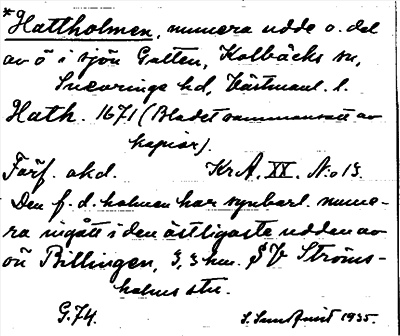 *Hattholmen, numera udde o. del
av ö i sjön Galten, Kolbäcks sn,
Snevringe hd, Västmanl. l.
Hath. 1671 (Bladet sammansatt av
kopior).
Förf. okd. KrA. XX. N:o 13.
Den f. d. holmen har synbarl. nume-
ra ingått i den östligaste udden av
ön Billingen, 3,3 km. SV Ströms-
holms stn.
G.74. S. Sundquist 1935.